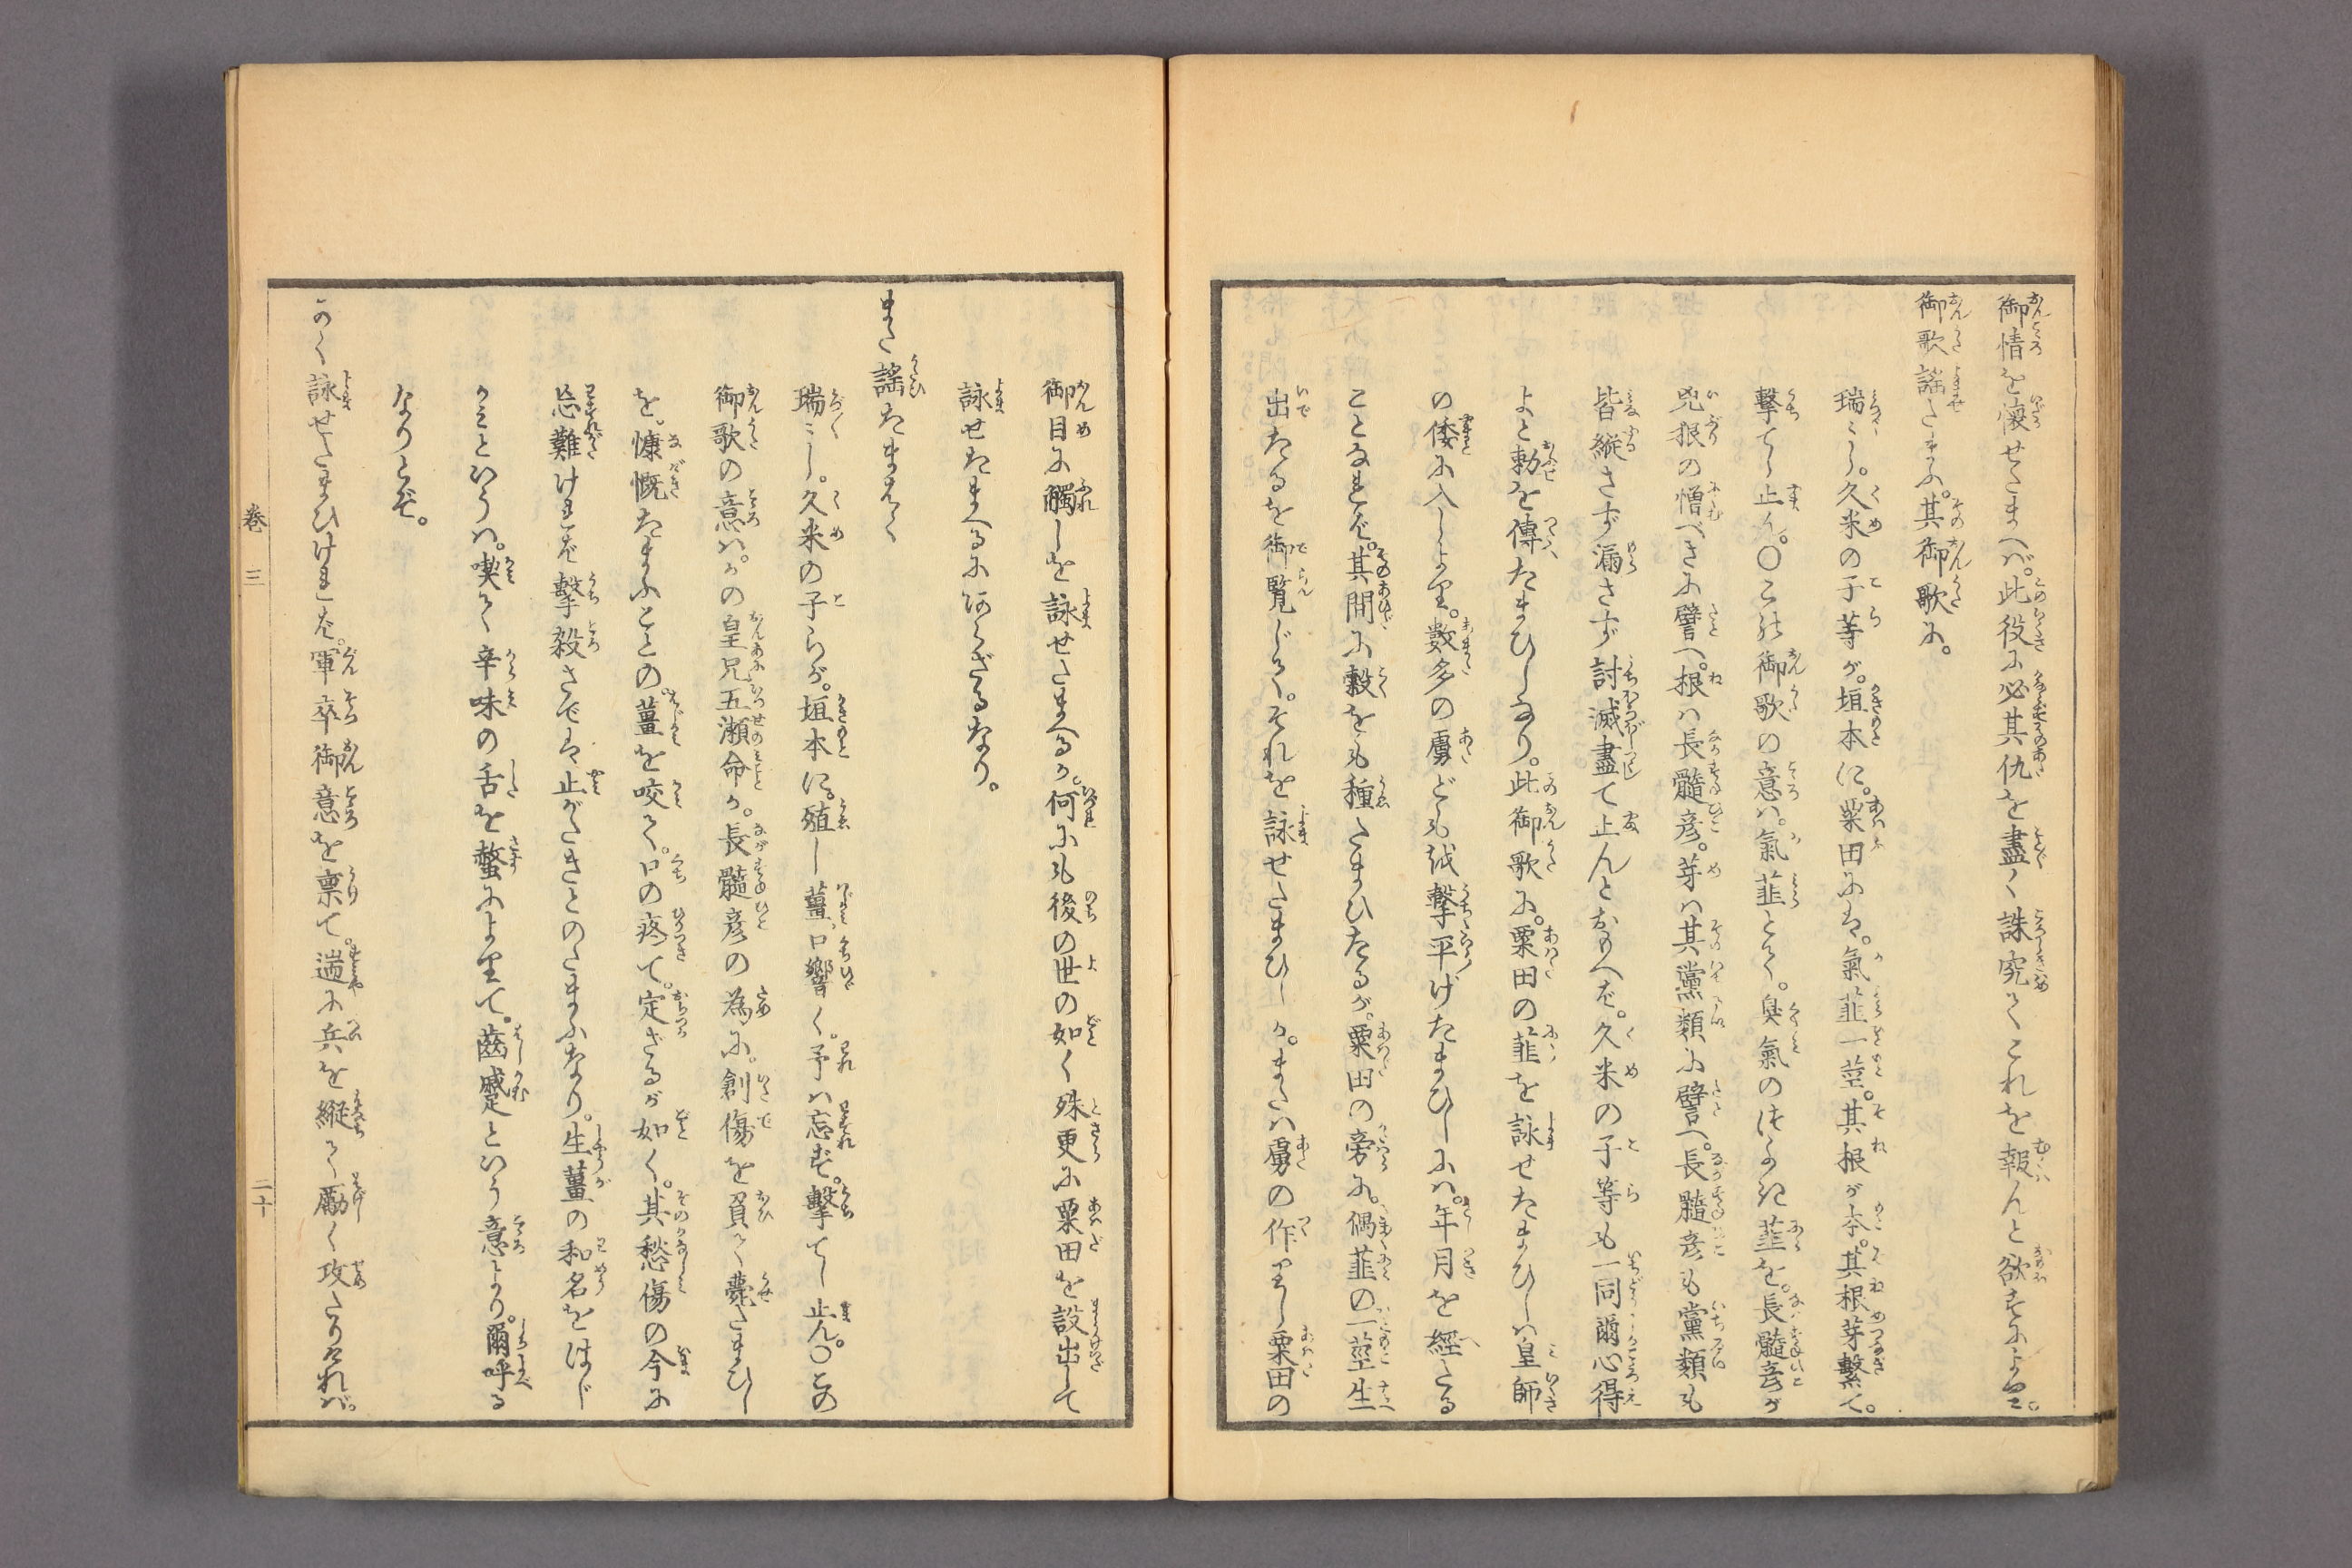 御情を懐せたまへば。此役に必其仇を盡く誅究てこれを報んと欲すによりて。
御歌謡たまふ。其御歌に。
瑞々し。久米の子等が。垣本に。粟田には。氣韮一莖。其根が本。其根芽繋て。
撃てし止ん。〇この御歌の意は。氣韮とて。臭氣のはなはだ韮を。長髓彦が
兇根の憎べきに譬へ。根は長髓彦。芽は其黨類に譬へ。長髓彦も黨類も
皆縦さず漏さず討滅盡て止んとおもへば。久米の子等も一同爾心得
よと勅を傳たまひしなり。此御歌に。粟田の韮を詠せたまひしは皇師
の倭に入しより。數多の虜ども を撃平げたまひしには。年月を經たる
ことなれば。其間に穀をも種たまひたるが。粟田の旁に。偶韮の一莖生
出たるを御覧じて。それを詠せたまひしか。または虜の作りし粟田の
御目に觸しを詠せたまへるか。何にも後の世の如く殊更に粟田を設出して
詠せたまへるにあらざるなり。
また謡たまはく
瑞々し。久米の子らが。垣本に。殖し薑。口響く。予は忘ず。撃てし止ん。〇この
御歌の意は。かの皇兄五瀬命か。長髓彦の為に。創傷を負て薨たまひし
を。慷慨たまふことの。薑を咬て。口の疼て。定ざるが如く。其愁傷の今に
忘難ければ撃殺さでは止がたきとのたまふなり。生薑の和名をはじ
かみといふは。喫て辛味の舌を螫によりて。齒蹙といふ意より。爾呼る
なりとぞ。
かく詠せたまひければ。軍卒御意を稟て。遄に兵を縦て勵く攻たりければ。
巻三
二十